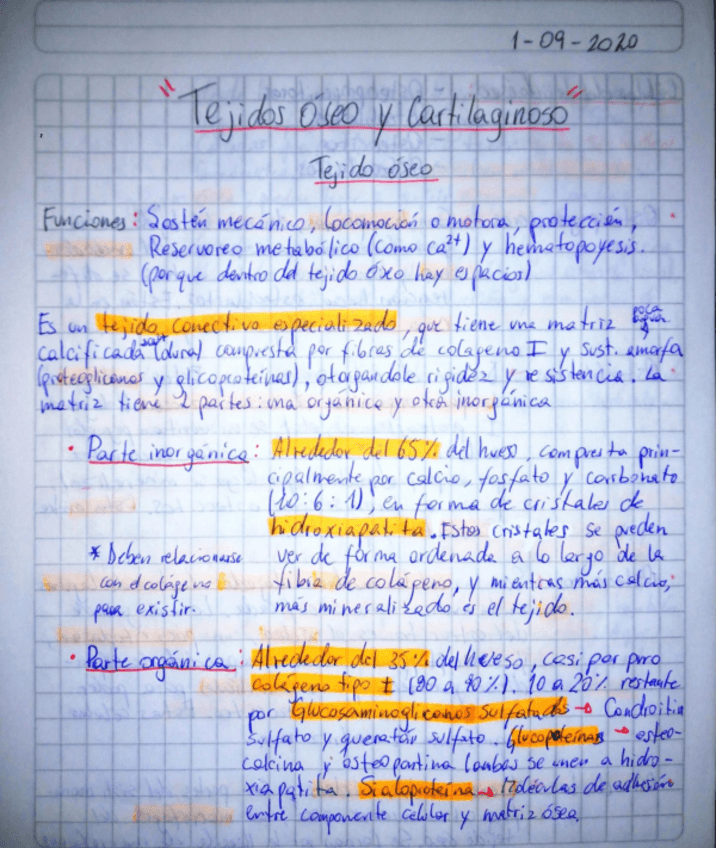 1-09-2020
"Tejidos óseo y Cartilaginoso"
Tejido óseo
Funciones: Sostén mecánico, locomoción o motora, protección,
Reservoreo metabólico (como ca²⁺) y hematopoyesis.
(porque dentro del tejido óseo hay espacios)
Es un tejido conectivo especializado, que tiene una matriz poca agua
calcificada (dura) compuesta por fibras de colageno I y sust. amorfa
(proteoglicanos y glicoproteínas), otorgandole rigidez y resistencia. La
matriz tiene 2 partes: una orgánica y otra inorgánica
• Parte inorgánica: Alrededor del 65% del hueso, compuesta prin-
cipalmente por calcio, fosfato y carbonato
(10:6:1), en forma de cristales de
hidroxiapatita. Estos cristales se pueden
* Deben relacionarse ver de forma ordenada a lo largo de la
con el colágeno fibra de colágeno, y mientras más calcio,
para existir. más mineralizado es el tejido.
• Parte orgánica: Alrededor del 35% del hueso, casi por puro
colágeno tipo I (80 a 90%). 10 a 20% restante
por Glucosaminoglicanos Sulfatados → Condroitin
sulfato y queratán sulfato. Glucoproteínas → osteo-
calcina y osteopontina (ambas se unen a hidro-
xiapatita. Sialoproteína → Moléculas de adhesión
entre componente celular y matriz ósea.